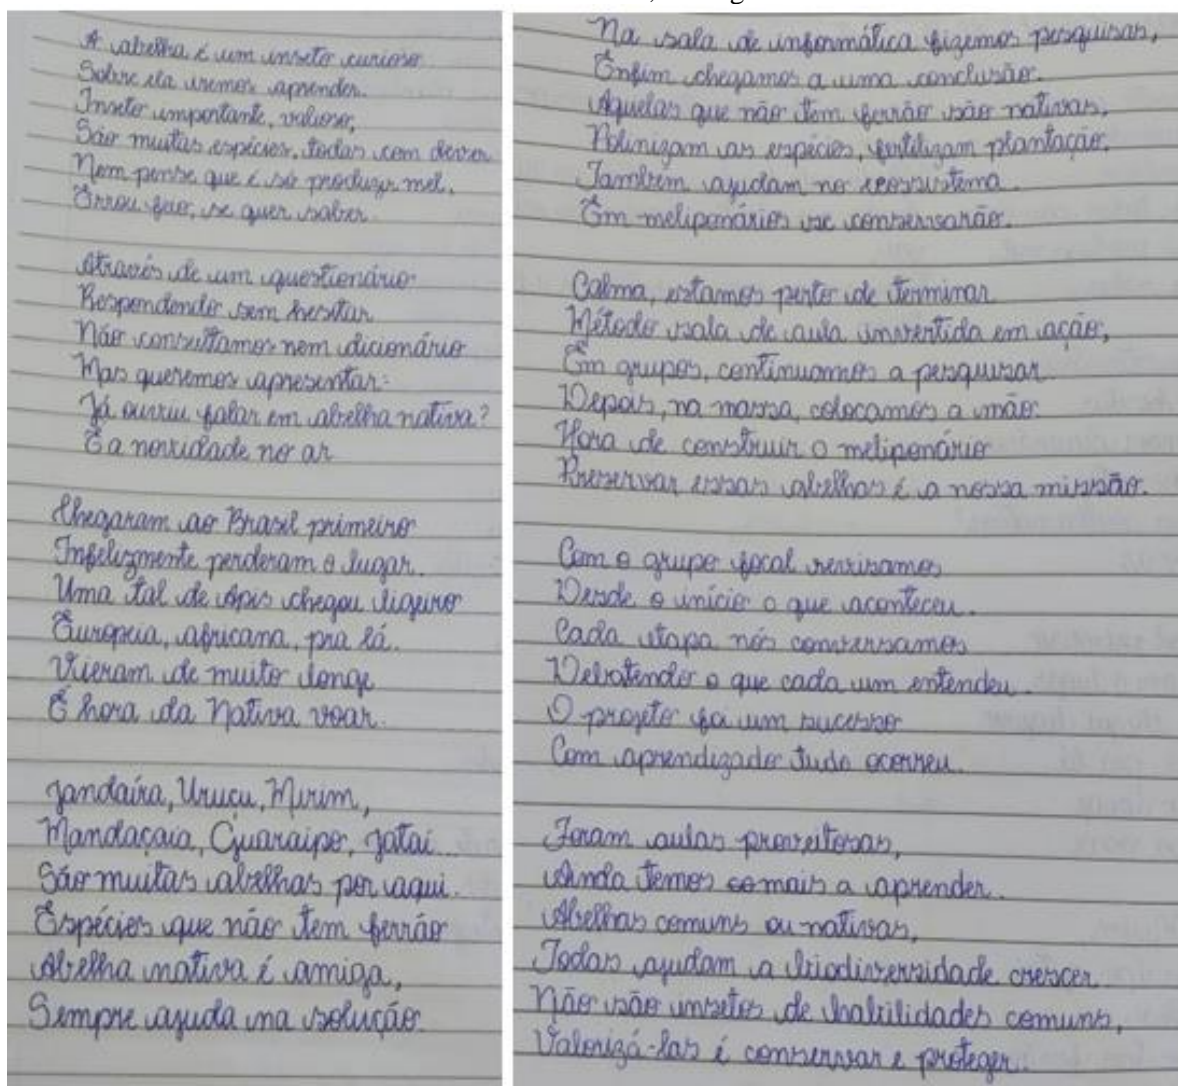 A abelha é um inseto curioso
Sobre ela iremos aprender.
Inseto importante, valioso,
São muitas espécies, todas com dever
Nem pense que é só produzir mel.
Errou feio, se quer saber.
Através de um questionário
Respondendo sem hesitar
Não consultamos nem dicionário
Mas queremos apresentar:
Já ouviu falar em abelha nativa?
É a novidade no ar
Chegaram ao Brasil primeiro
Infelizmente perderam o lugar.
Uma tal de ápis chegou ligeiro
Europeia, africana, pra lá.
Vieram de muito longe
É hora da Nativa voar.
Jandaíra, Uruçu, Mirim,
Mandaçaia, Guaraipo, Jataí...
São muitas abelhas por aqui.
Espécies que não tem ferrão
Abelha nativa é amiga,
Sempre ajuda na solução.
Na sala de informática fizemos pesquisas,
Enfim chegamos a uma conclusão.
Aquelas que não tem ferrão são nativas,
Polinizam as espécies, fertilizam plantação.
Também ajudam no ecossistema.
Em meliponários se conservarão.
Calma, estamos perto de terminar
Método sala de aula invertida em ação,
Em grupos, continuamos a pesquisar.
Depois, na massa, colocamos a mão.
Hora de construir o meliponário
Preservar essas abelhas é a nossa missão.
Com o grupo focal revisamos
Desde o início o que aconteceu.
Cada etapa nós conversamos
Debatendo o que cada um entendeu.
O projeto foi um sucesso
Com aprendizado tudo ocorreu.
Foram aulas proveitosas,
Ainda temos mais a aprender.
Abelhas comuns ou nativas,
Todas ajudam a biodiversidade crescer.
Não são insetos de habilidades comuns,
Valorizá-las é conservar e proteger.